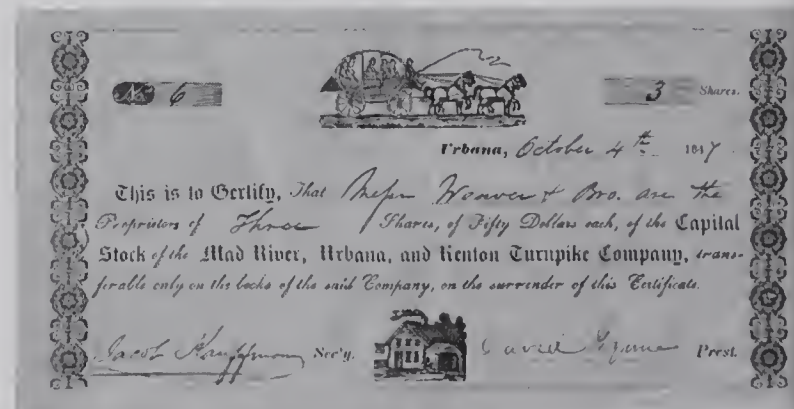 No 6
3 Shares.
Urbana, October 4th 1847
This is to Certify, That Messrs Weaver & Bro. are the
Proprietors of Three Shares, of Fifty Dollars each, of the Capital
Stock of the Mad River, Urbana, and Kenton Turnpike Company, trans-
ferable only on the books of the said Company, on the surrender of this Certificate.
Jacob Kauffman Sec'y. David Prest.